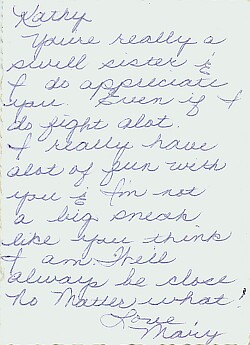 Kathy
You're really a
swell sister &
I do appreciate
you. Even if I
do fight alot.
I really have
alot of fun with
you & I'm not
a big sneak
like you think
I am. We'll
always be close
no matter what!
Love
Mary